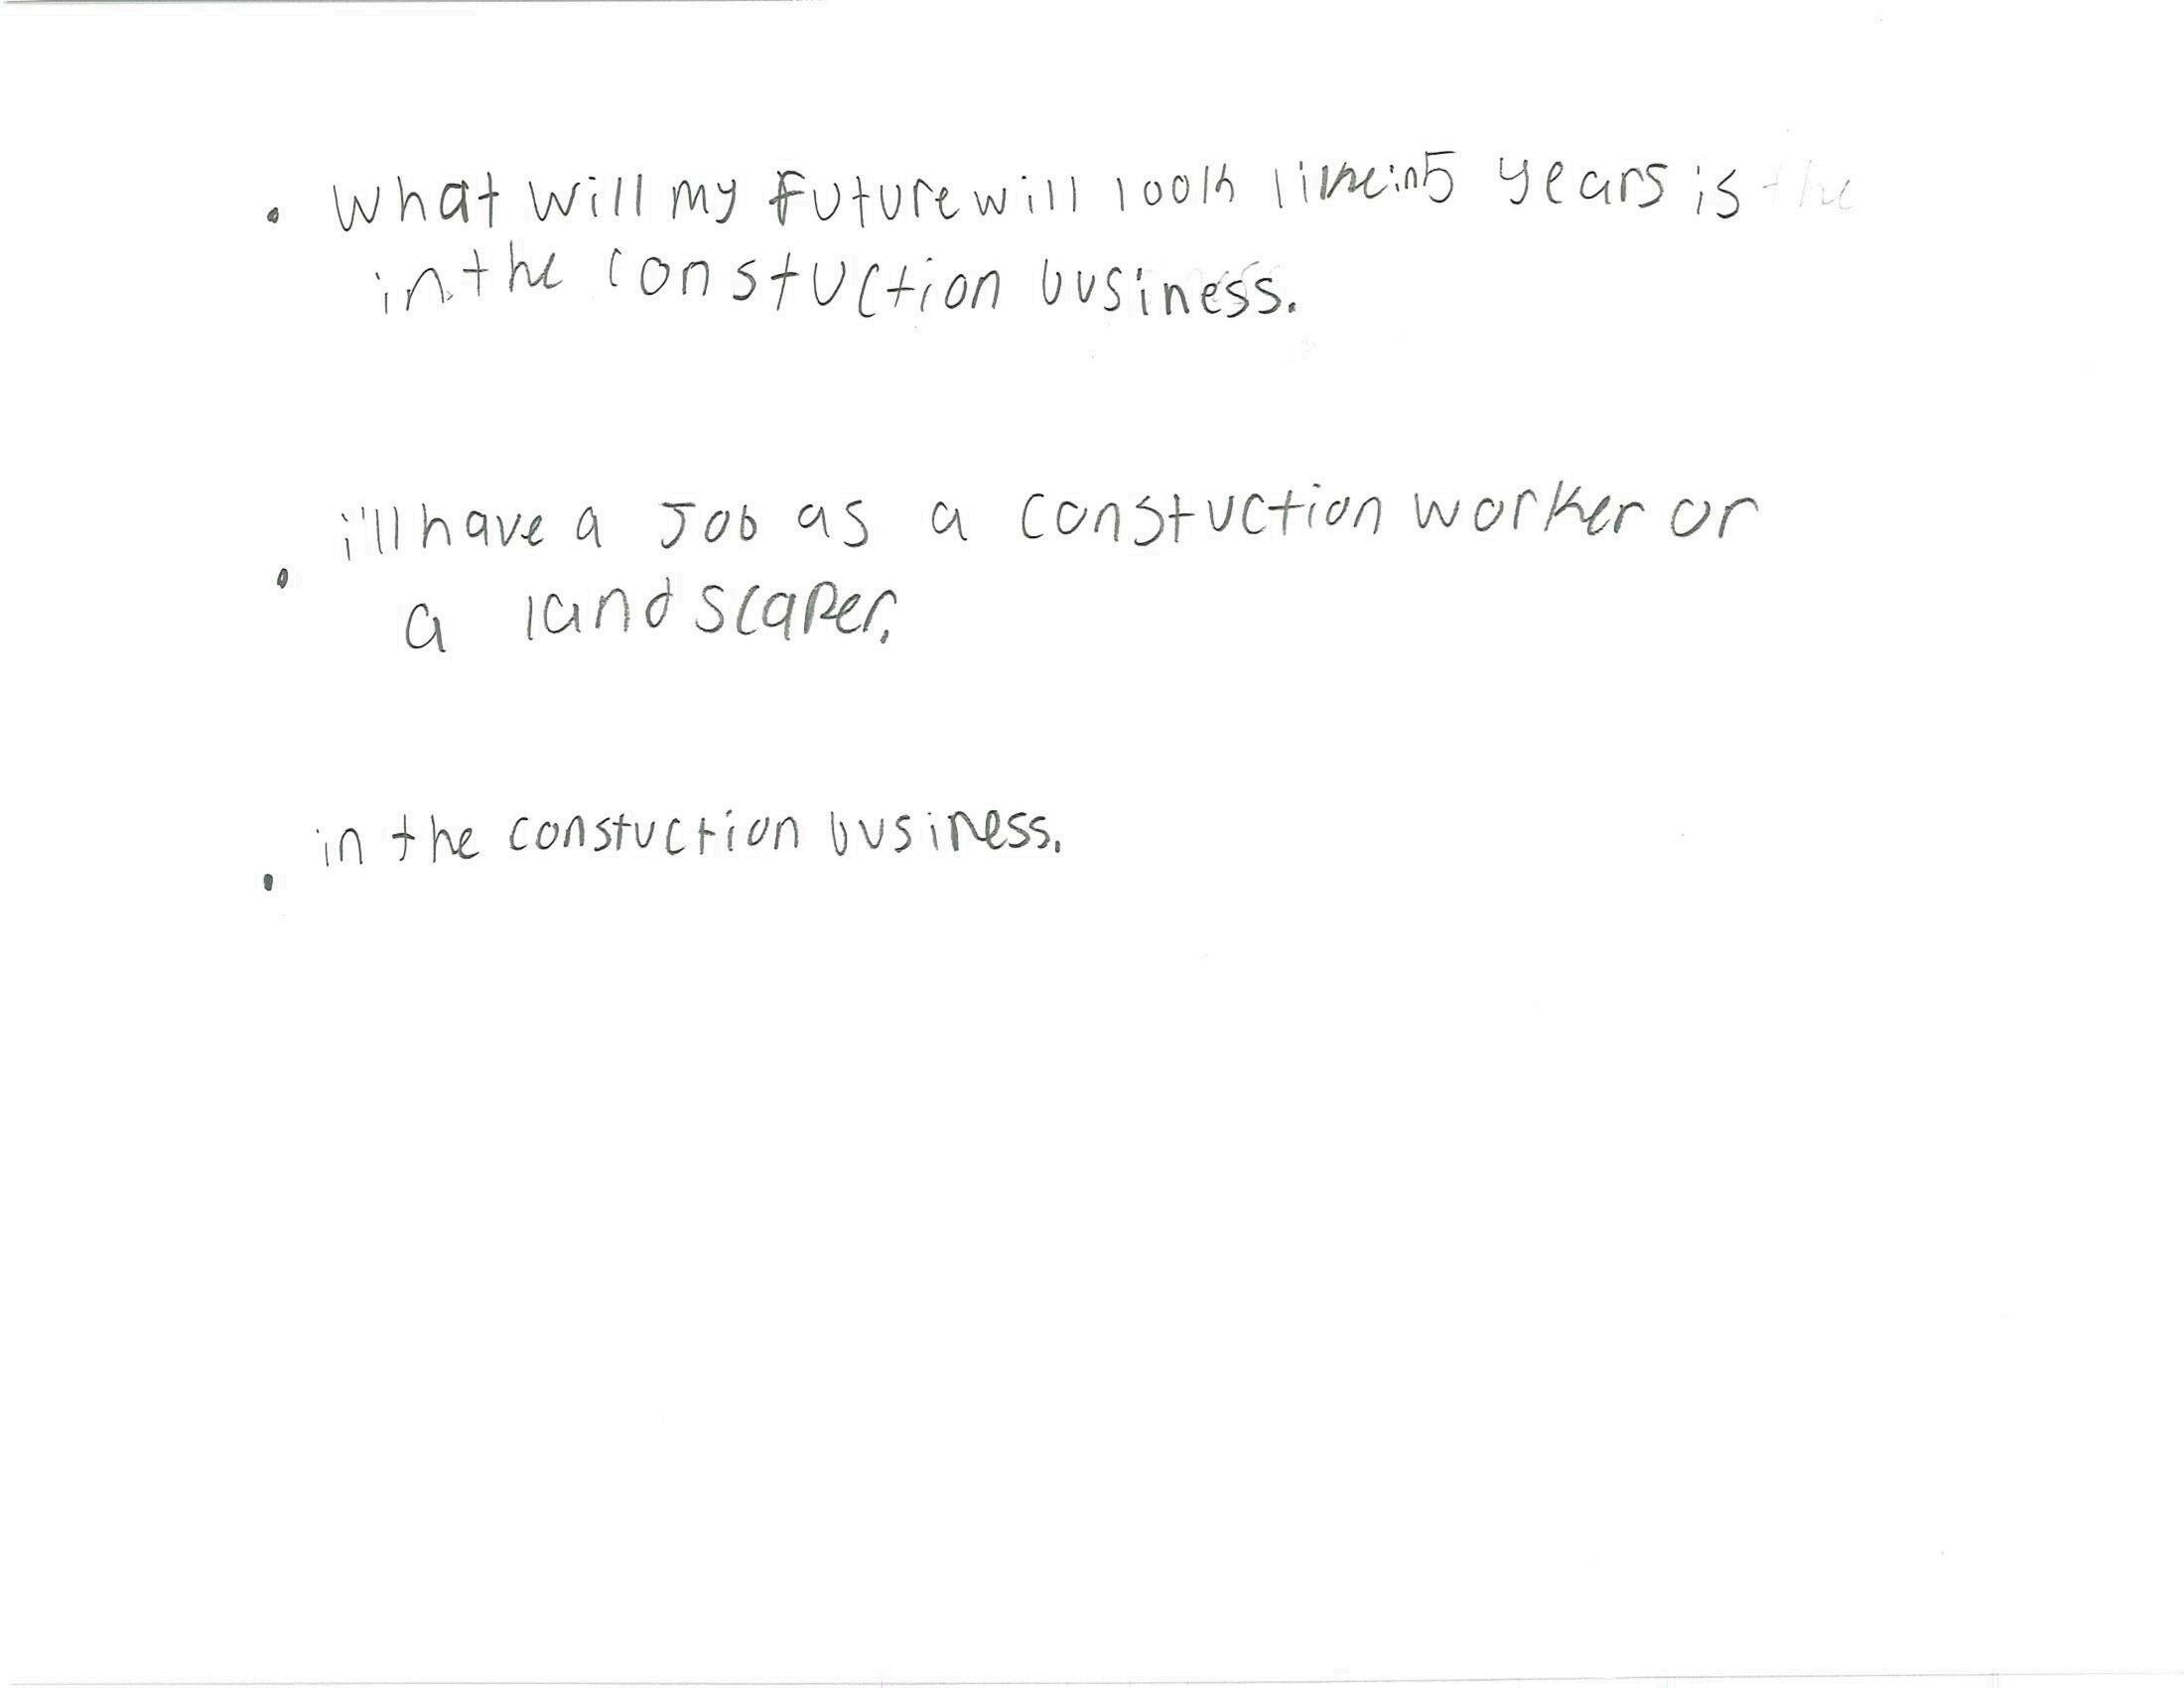 • What will my future will look like in 5 years is the
in the constuction business.
• i'll have a Job as a constuction worker or
a landscaper.
• in the constuction business.